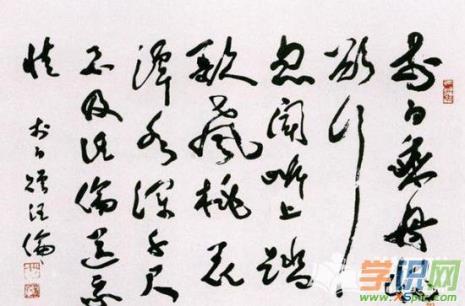 李白乘舟將
欲行
忽聞岸上踏
歌聲桃花
潭水深千尺
不及汪倫送我
情 李白贈汪倫
学识网